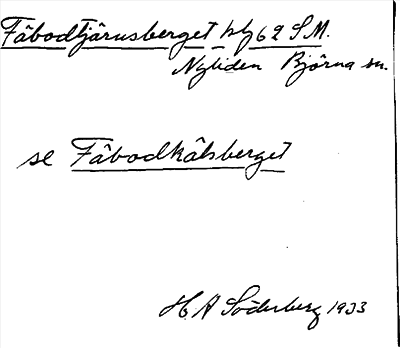 Fäbodtjärnsberget hfg 62 S.M.
Nyliden Björna sn.
se Fäbodkålsberget
H A Söderberg 1933